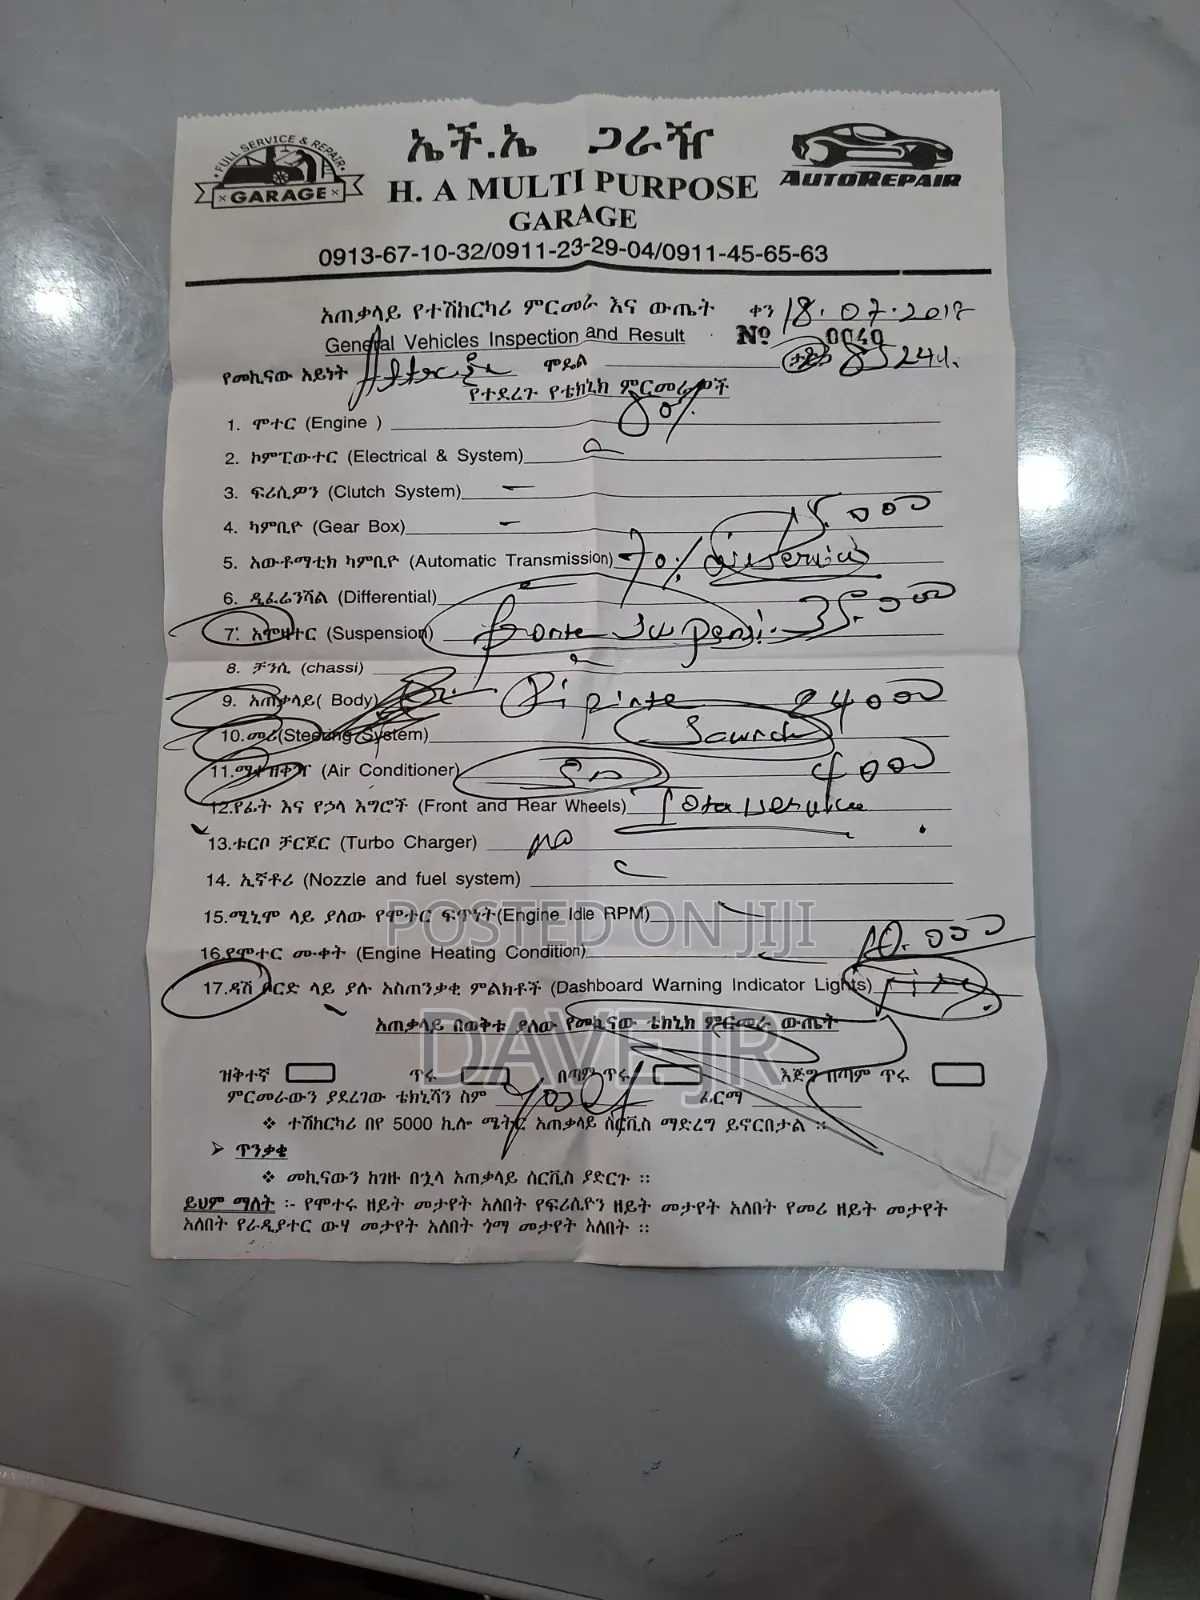 FULL SERVICE & REPAIR
GARAGE
ኤች.ኤ ጋራዥ
H. A MULTI PURPOSE
GARAGE
AUTOREPAIR
0913-67-10-32/0911-23-29-04/0911-45-65-63
አጠቃላይ የተሽከርካሪ ምርመራ እና ውጤት ቀን 18.07.2017
General Vehicles Inspection and Result Nº 0040
የመኪናው አይነት ሞዴል
የተደረጉ የቴክኒክ ምርመራዎች
1. ሞተር (Engine ) 80%
2. ኮምፒውተር (Electrical & System)
3. ፍሪሲዎን (Clutch System) -
4. ካምቢዮ (Gear Box) -
5. አውቶማቲክ ካምቢዮ (Automatic Transmission) 70% 15.000
6. ዲፈሬንሻል (Differential)
7. (Suspension) fronte suspensi. 35.000
8. ቻንሲ (chassi)
9. አጠቃላይ( Body) 24000
10.መሪ(Steering System)
11. (Air Conditioner) 4000
12.የፊት እና የኃላ እግሮች (Front and Rear Wheels)
13.ቱርቦ ቻርጀር (Turbo Charger) no
14. ኢኛቶሪ (Nozzle and fuel system)
15.ሚኒሞ ላይ ያለው የሞተር ፍጥነት(Engine Idle RPM)
16.የሞተር ሙቀት (Engine Heating Condition) 10.000
17.ዳሽ ቦርድ ላይ ያሉ አስጠንቃቂ ምልክቶች (Dashboard Warning Indicator Lights)
POSTED ON JIJI
DAVE JR
አጠቃላይ በወቅቱ ያለው የመኪናው ቴክኒክ ምርመራ ውጤት
ዝቅተኛ ጥሩ በጣም ጥሩ እጅግ በጣም ጥሩ
ምርመራውን ያደረገው ቴክኒሻን ስም ፊርማ
❖ ተሽከርካሪ በየ 5000 ኪሎ ሜትር አጠቃላይ ሰርቪስ ማድረግ ይኖርበታል ።
➢ ጥንቃቄ
❖ መኪናውን ከገዙ በኋላ አጠቃላይ ሰርቪስ ያድርጉ ።
ይህም ማለት :- የሞተሩ ዘይት መታየት አለበት የፍሪሲዮን ዘይት መታየት አለበት የመሪ ዘይት መታየት
አለበት የራዲያተር ውሃ መታየት አለበት ጎማ መታየት አለበት ።